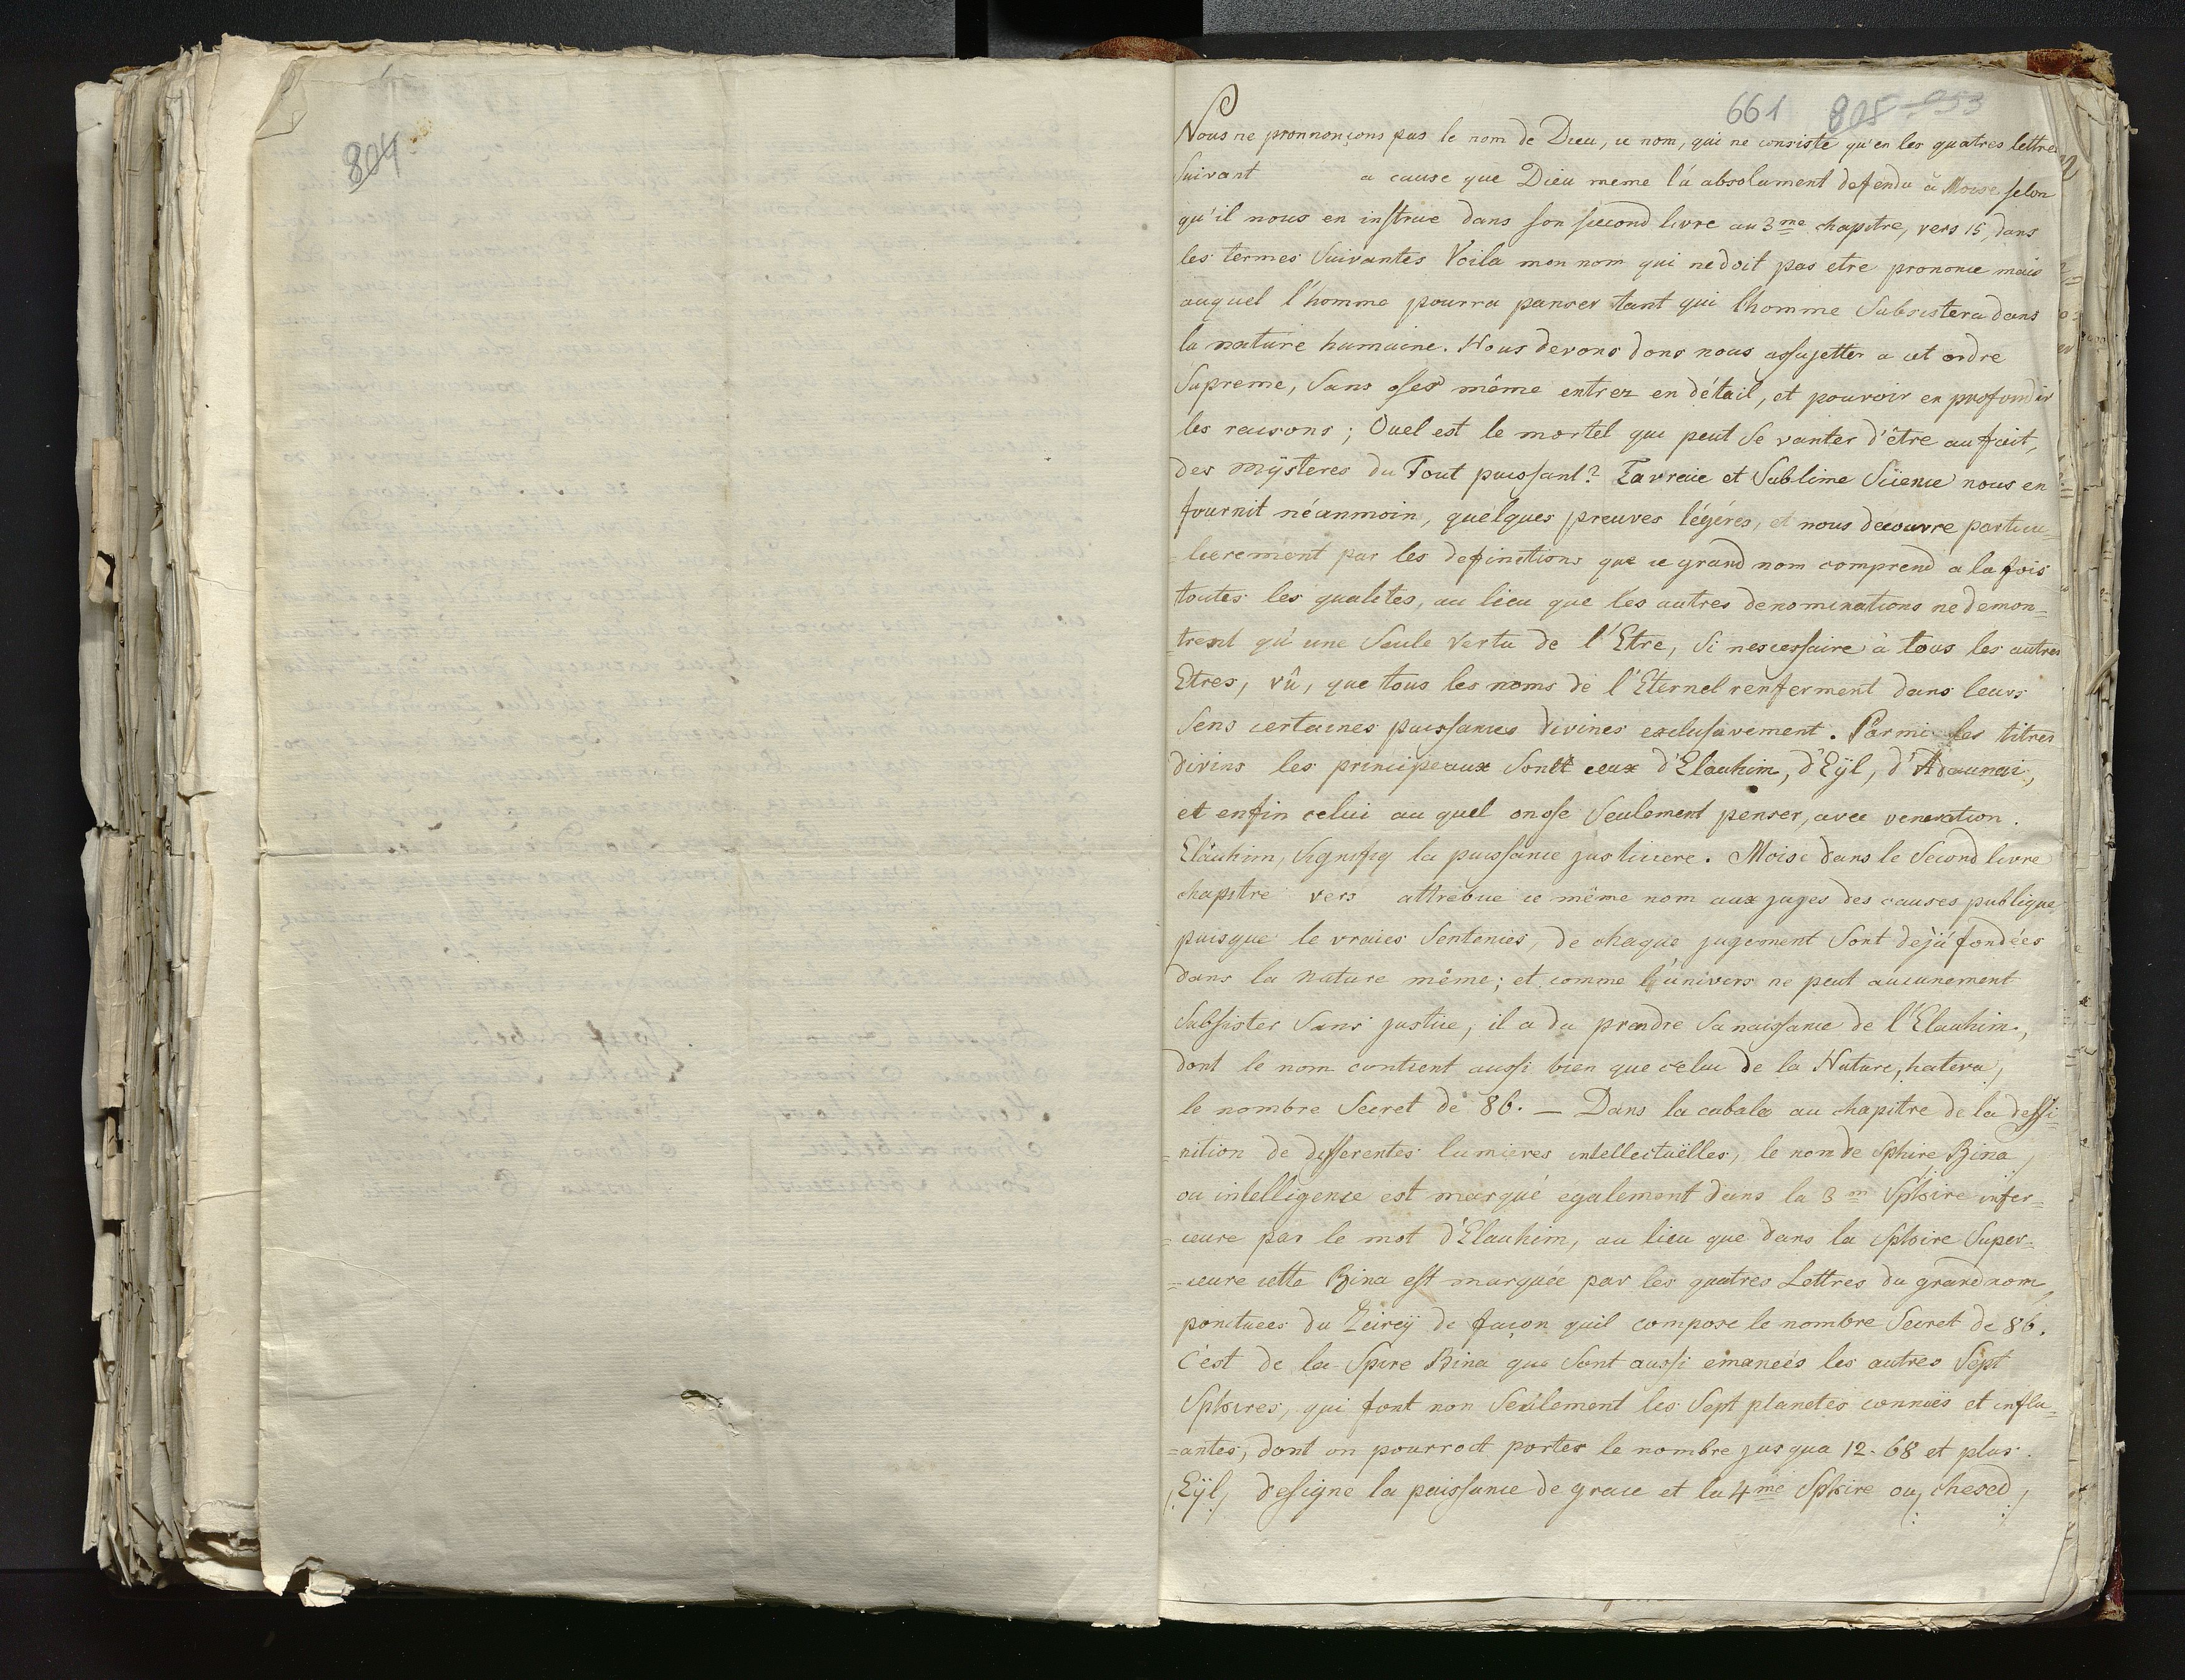 804
661 805 953
Nous ne pronnonçons pas le nom de Dieu, ce nom, qui ne consiste qu'en les quatres lettres
Suivant a cause que Dieu meme l'a absolument defendu à Moise, selon
qu'il nous en instruie dans son second livre au 3me chapitre, vers 15, dans
les termes Suivantes Voila mon nom qui ne doit pas etre prononce mais
auquel l'homme pourra panser tant qui l'homme Subsistera dans
la nature humaine. Nous devons donc nous assujetter a cet ordre
Supreme, Sans oser même entrer en détail, et pouvoir en profondir
les raisons; Quel est le mortel qui peut Se vanter d'être au fait,
des mÿsteres du Tout puissant? La vraie et Sublime Science nous en
fournit néanmoin, quelques preuves légéres, et nous decouvre particu-
=lierement par les definitions que ce grand nom comprend a la fois
toutes les qualites, au lieu que les autres denominations ne demon=
=trent qu'une Seule Vertu de l'Etre, Si nescessaire à tous les autres
Etres, vû, que tous les noms de l'Eternel renferment dans leurs
Sens certaines puissances divines exclusivement. Parmi les titres
divins les principeaux Sont ceux d'Elauhim, d'Eÿl, d'Adaunai,
et enfin celui au quel on ose Seulement penser, avec veneration.
Elauhim, Signifiy la puissance justiciere. Moise dans le Second livre
chapitre vers attribue ce même nom aux juges des causes publique,
puisque le vraies Sentences, de chaque jugement Sont dejà fondées
dans la Nature même; et comme l'univers ne peut aucunement
Subsister Sans justice, il a du prendre Sa naissance de l'Elauhim,
dont le nom contient aussi bien que celui de la Nature, hateva,
le nombre Secret de 86. — Dans la cabala au chapitre de la deffi-
=nition de differentes lumieres intellectuëlles, le nom de Sphire Bina,
ou intelligence est marqué egalement dans la 3m Sphire infer=
=ieure par le mot d'Elauhim, au lieu que dans la Sphire Super=
=ieure cette Bina est marquée par les quatres Lettres du grand nom,
ponctuees du Zeireÿ de façon quil compose le nombre Secret de 86.
C'est de la Spire Bina que Sont aussi emaneés les autres Sept
Sphires, qui font non Seulement les Sept planetes connuës et influ=
=antes, dont on pourroit porter le nombre jusqua 12. 68 et plus.
Eÿl, designe la puissance de grace et la 4me Sphire ou, chesed,